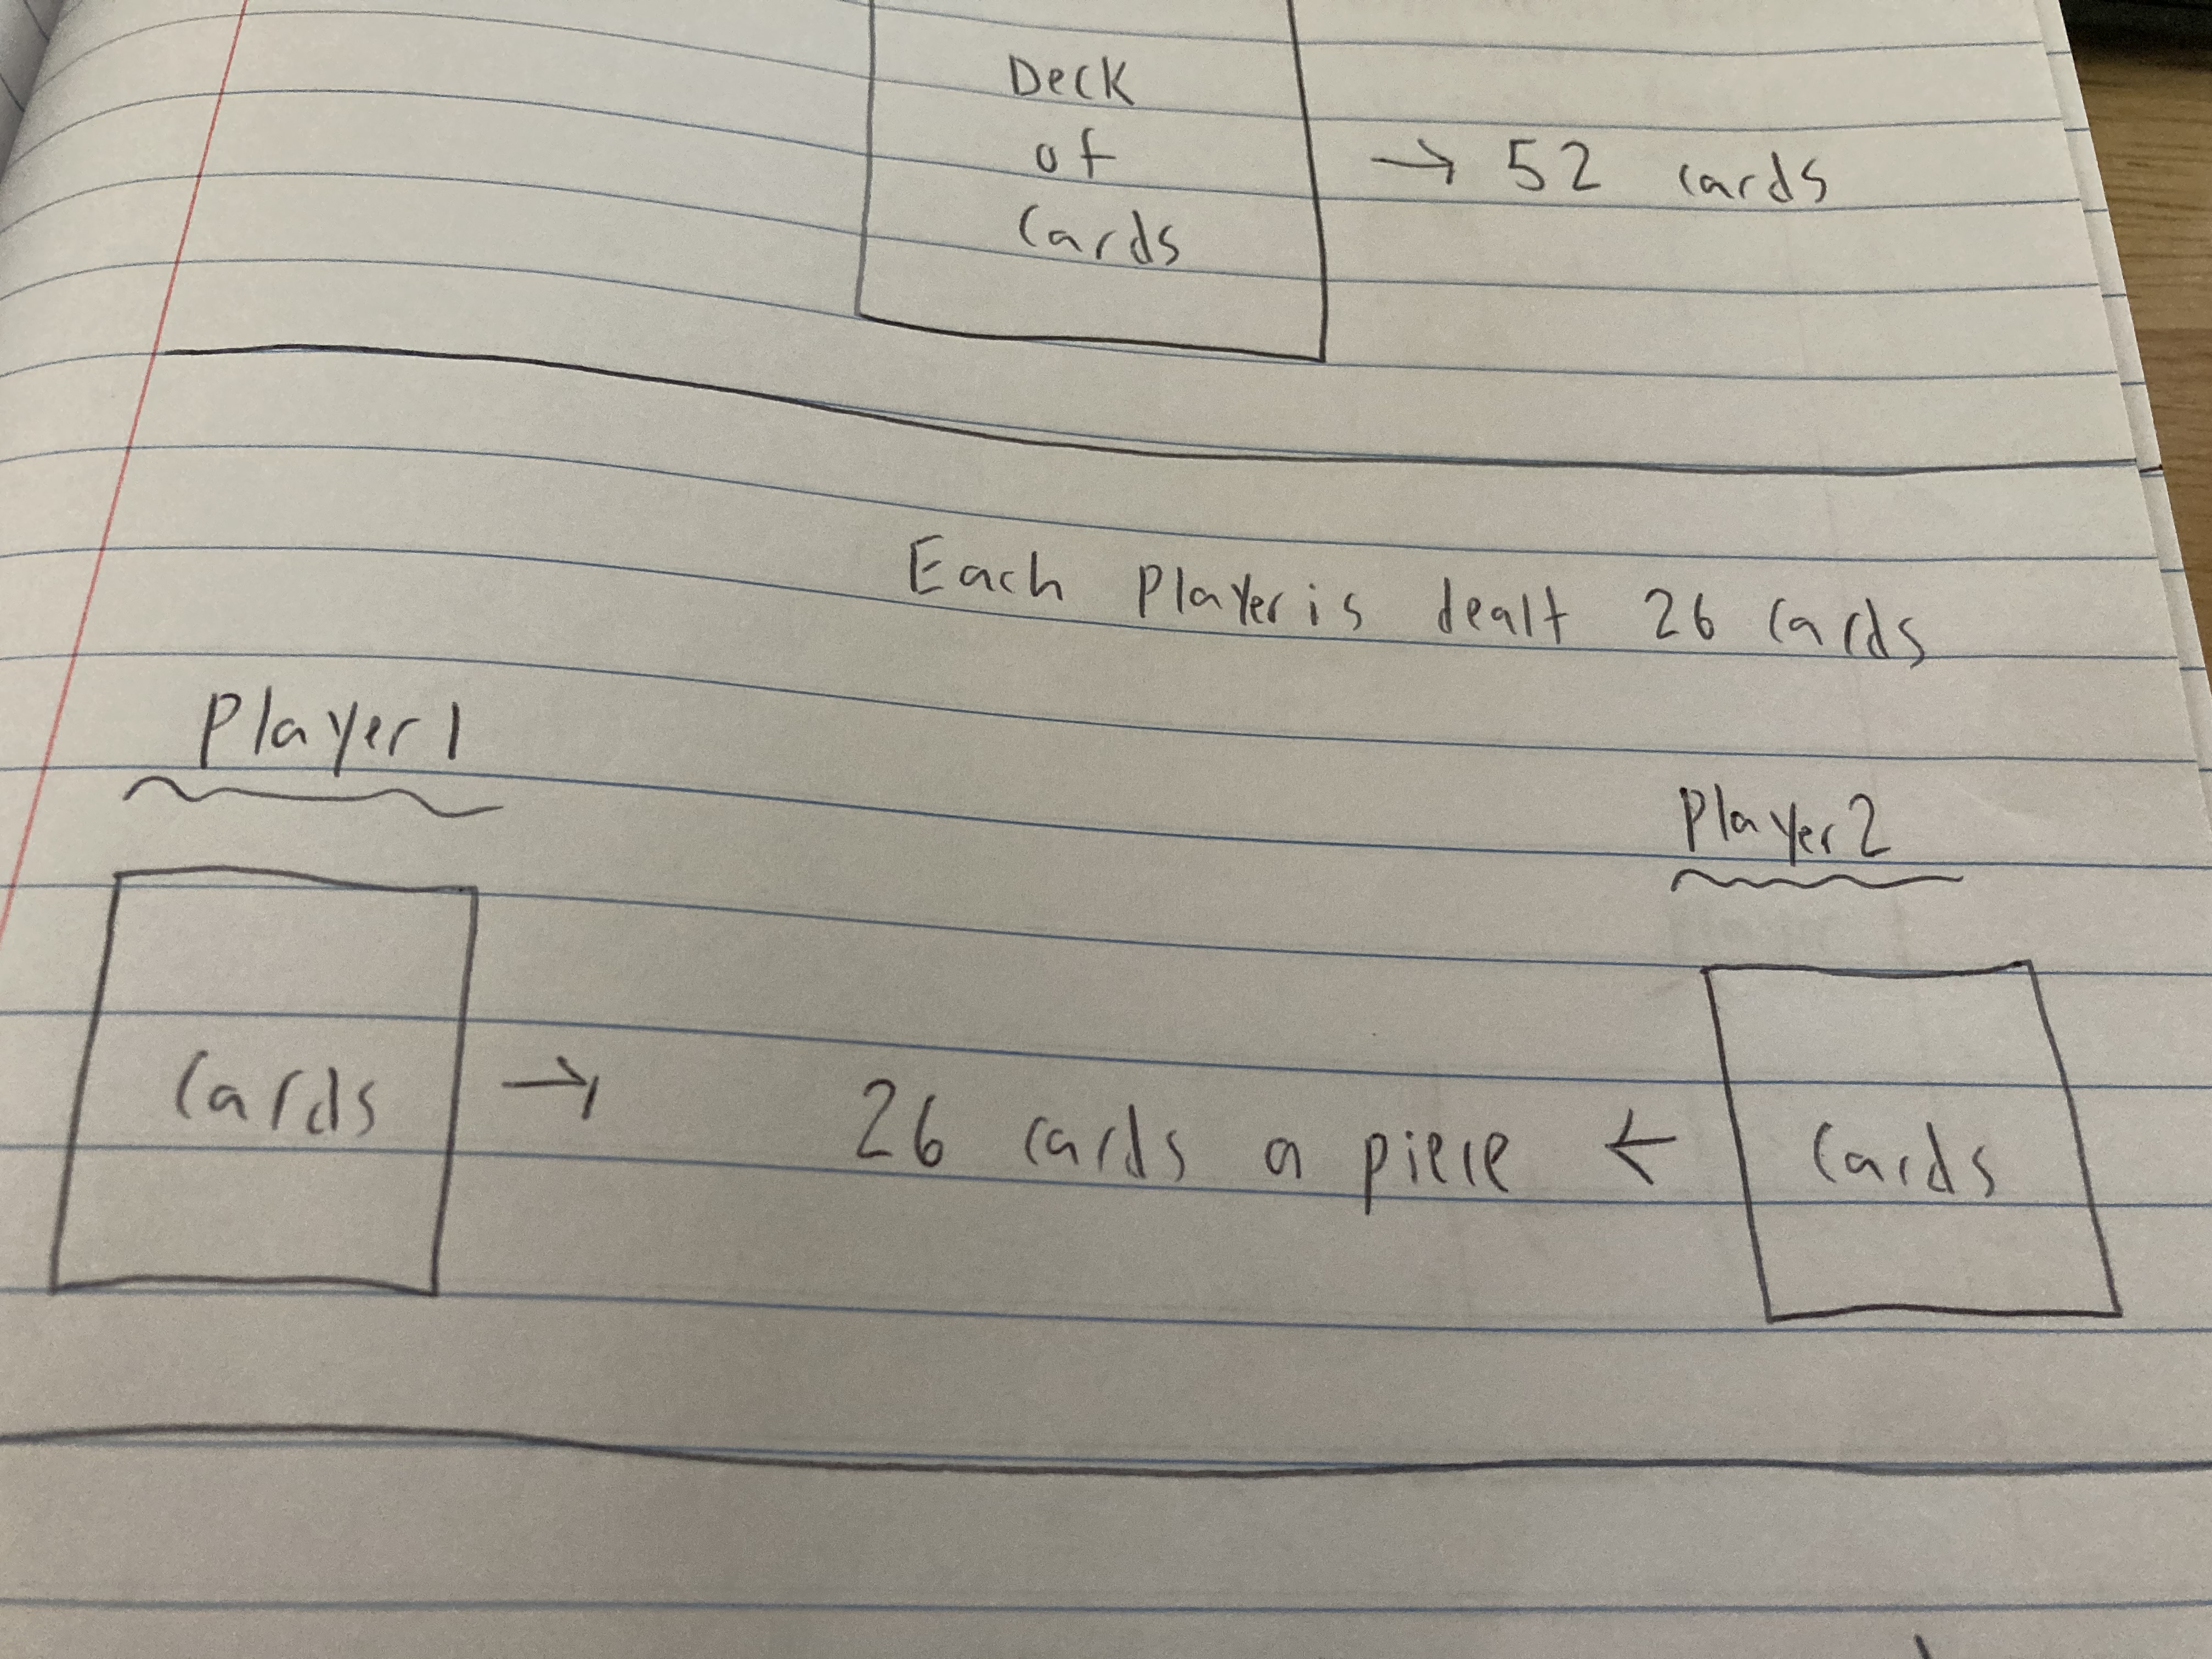 Deck
of
Cards
→ 52 cards
Each player is dealt 26 cards
Player 1
Player 2
Cards
→ 26 cards a piece ←
Cards